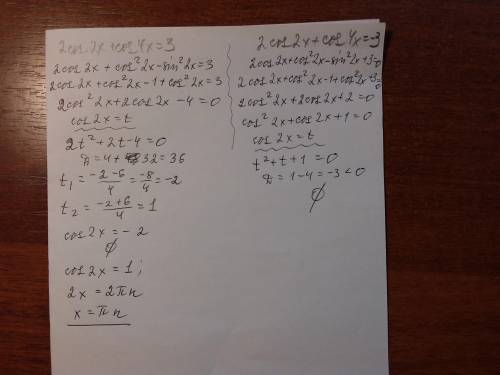 2cos2x+cos4x=3
2cos2x + cos²2x-sin²2x=3
2cos2x+cos²2x-1+cos²2x=3
2cos²2x+2cos2x-4=0
cos2x=t
2t²+2t-4=0
D=4+32=36
t₁=(-2-6)/4=-8/4=-2
t₂=(-2+6)/4=1
cos2x=-2
∅
cos2x=1;
2x=2πn
x=πn
2cos2x+cos4x=-3
2cos2x+cos²2x-sin²2x+3=0
2cos2x+cos²2x-1+cos²2x+3=0
2cos²2x+2cos2x+2=0
cos²2x+cos2x+1=0
cos2x=t
t²+t+1=0
D=1-4=-3<0
∅